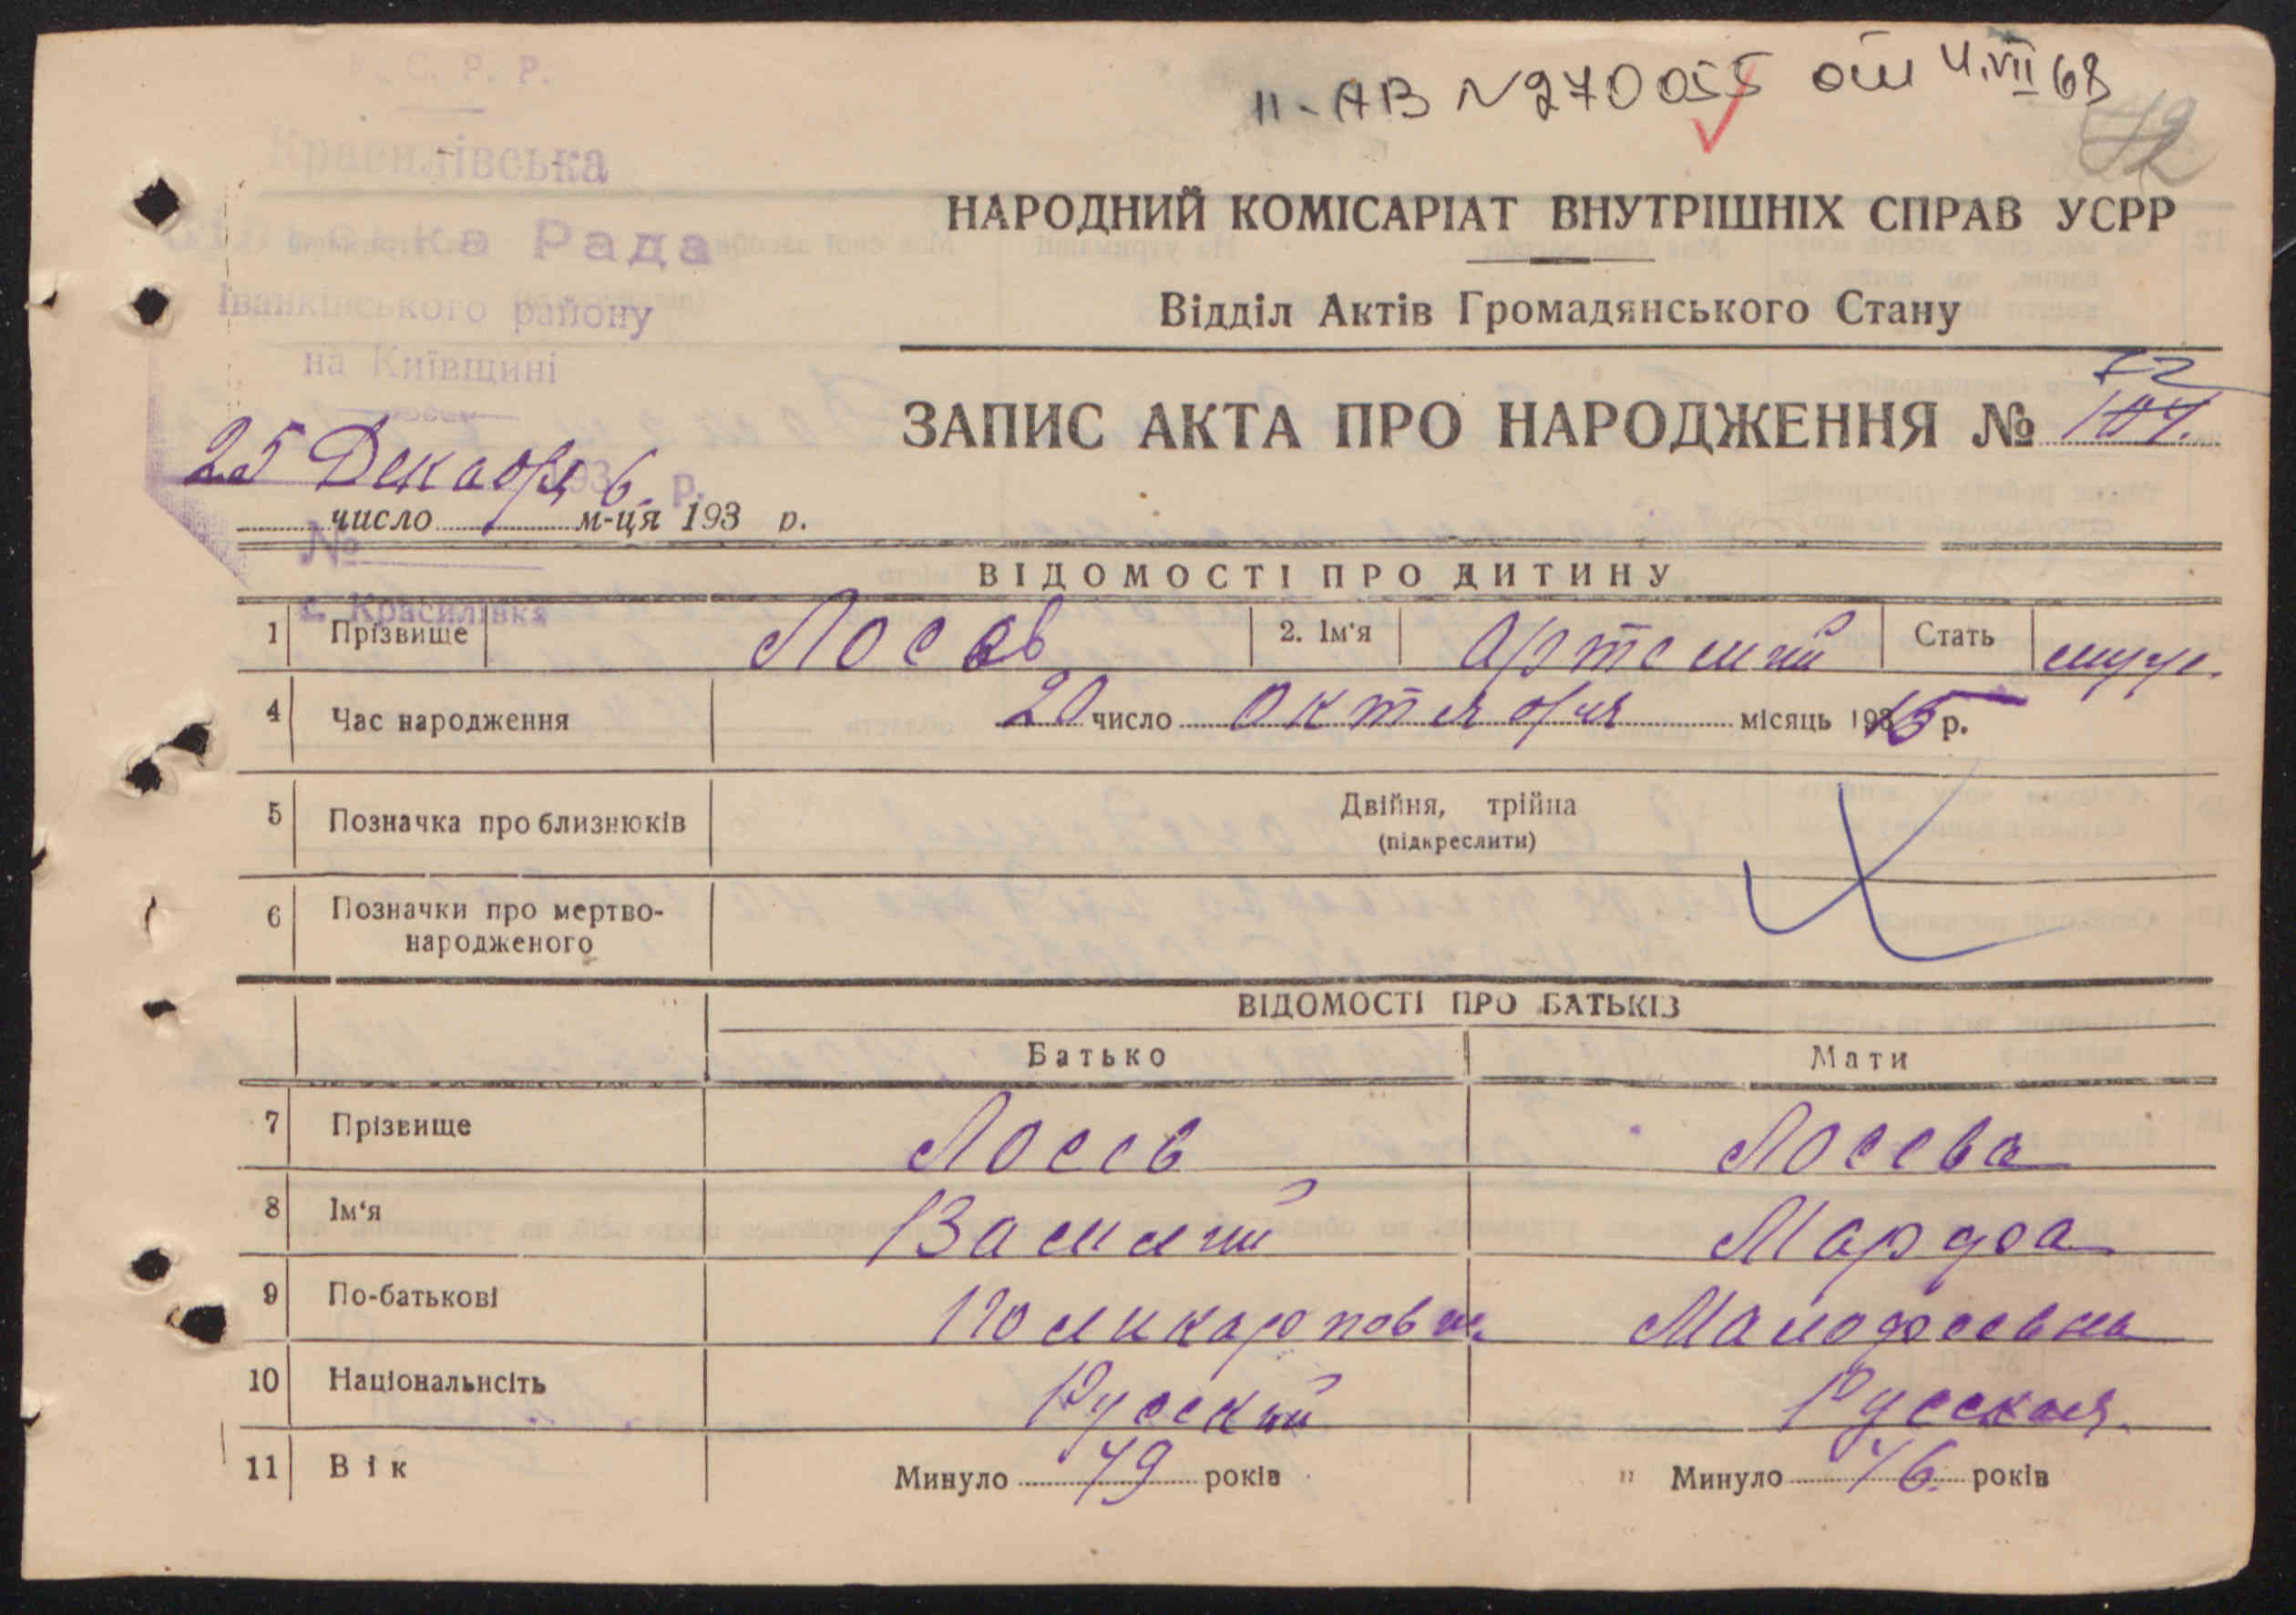 У. С. Р. Р.
II-АВ N 270055 от 4.VII 68
42
Красилівська
НАРОДНИЙ КОМІСАРІАТ ВНУТРІШНІХ СПРАВ УСРР
Рада
Іванківського району
Відділ Актів Громадянського Стану
на Київщині
72
ЗАПИС АКТА ПРО НАРОДЖЕННЯ № 104.
25 Декабря 6.
число м-ця 193 р.
№
ВІДОМОСТІ ПРО ДИТИНУ
с. Красилівка
1 Прізвище Лосев 2. Ім'я Артемий Стать муж.
4 Час народження 20 число октября місяць 1915 р.
5 Позначка про близнюків Двійня, трійна
(підкреслити)
6 Позначки про мертво-
народженого
ВІДОМОСТІ ПРО БАТЬКІВ
Батько Мати
7 Прізвище Лосев Лосева
8 Ім'я Василий Марфа
9 По-батькові Поликарпович Мамофеевна
10 Національнсіть Русский Русская.
11 Вік Минуло 49 років " Минуло 46. років